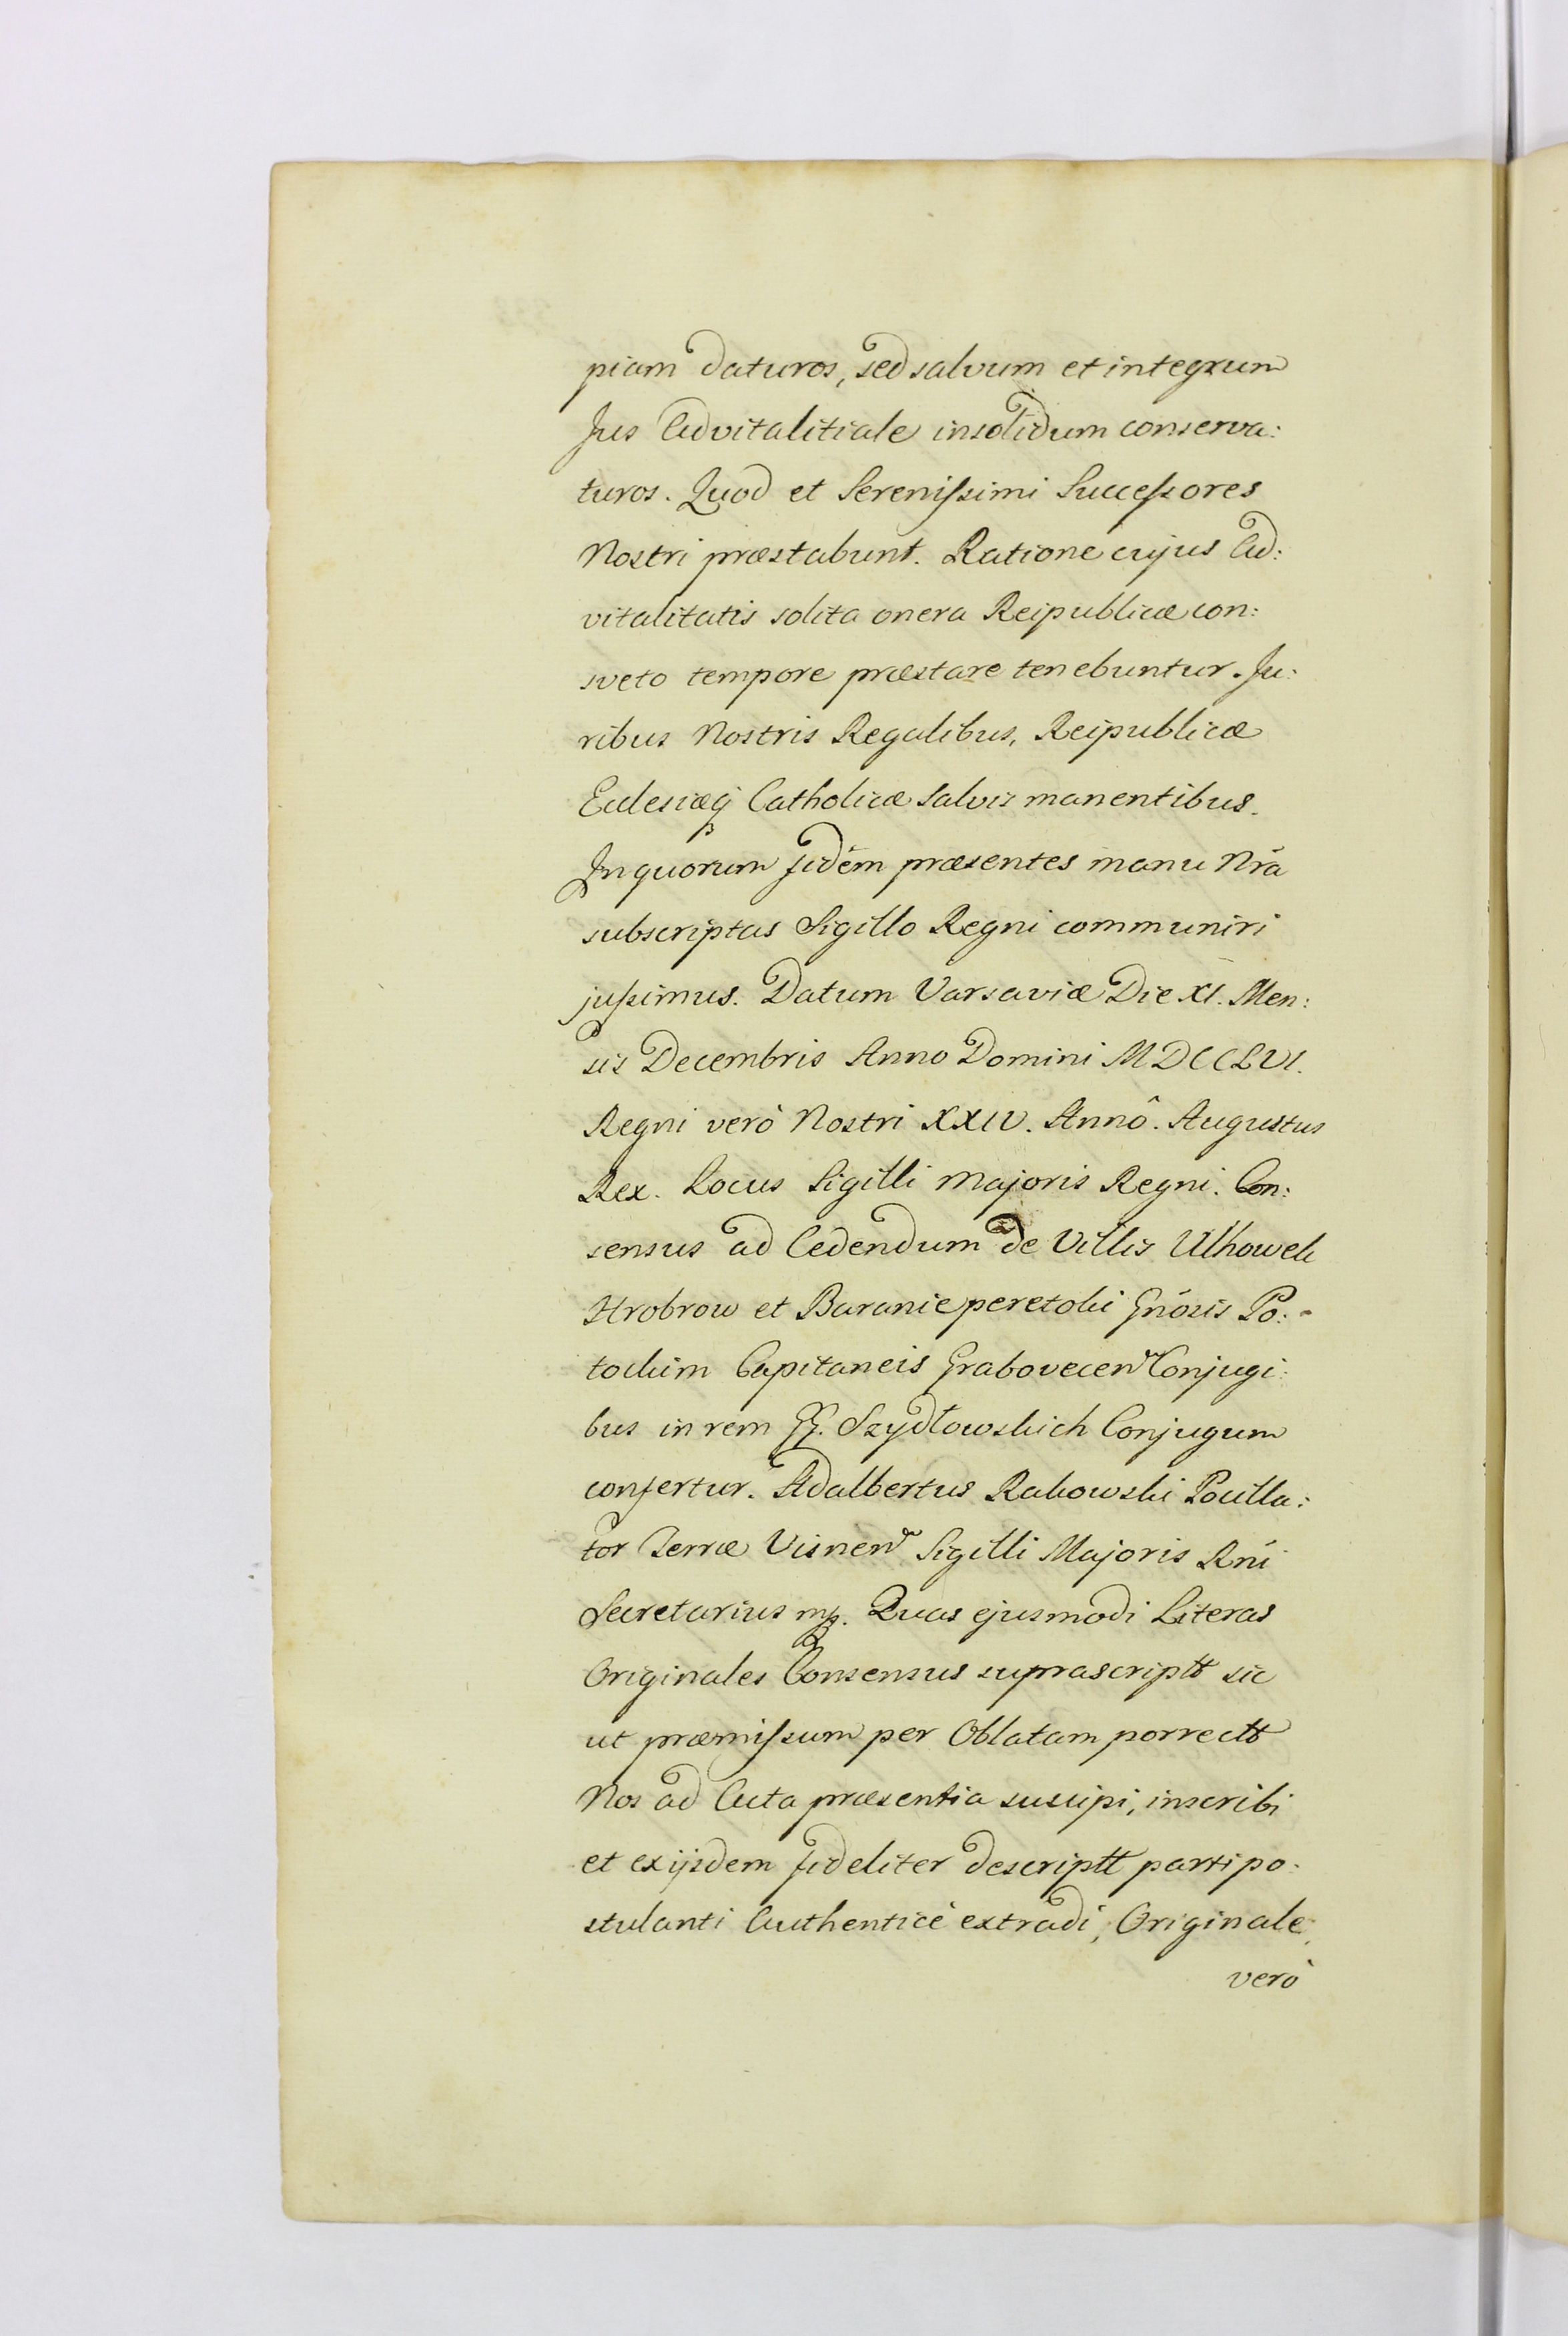 piam daturos, sed salvum et integrum
Jus Advitalitiale insolidum conserva:
turos. Quod et Serenissimi Successores
Nostri præstabunt. Ratione cujus Ad:
vitalitatis solita onera Reipublicæ con:
sveto tempore præstare tenebuntur. Ju:
ribus Nostris Regalibus, Reipublicæ
Eclesiæq́ Catholicæ salvis manentibus.
In quorum fidem præsentes manu Nrã
subscriptas Sigillo Regni communiri
jussimus. Datum Varsaviæ Die XI. Men:
sis Decembris Anno Domini MDCCLVI.
Regni verò Nostri XXIV. Annô. Augustus
Rex. Locus Sigilli Majoris Regni. Con:
sensus ad Cedendum de Villis Ulhowek
Hrobrow et Baranieperetoki Gnõsis Po:
tockim Capitaneis Grabovecen Conjugi:
bus in rem GG. Szydłowskich Conjugum
confertur. Adalbertus Rakowski Pocilla:
tor Terræ Visnen Sigilli Majoris Rñi
Secretarius mp. Quas ejusmodi Literas
Originales Consensus suprascriptt sic
ut præmissum per Oblatam porrectt
Nos ad Acta præsentia suscipi, inscribi
et exijsdem fideliter descriptt parti po:
stulanti Authenticè extradi, Originale
verò